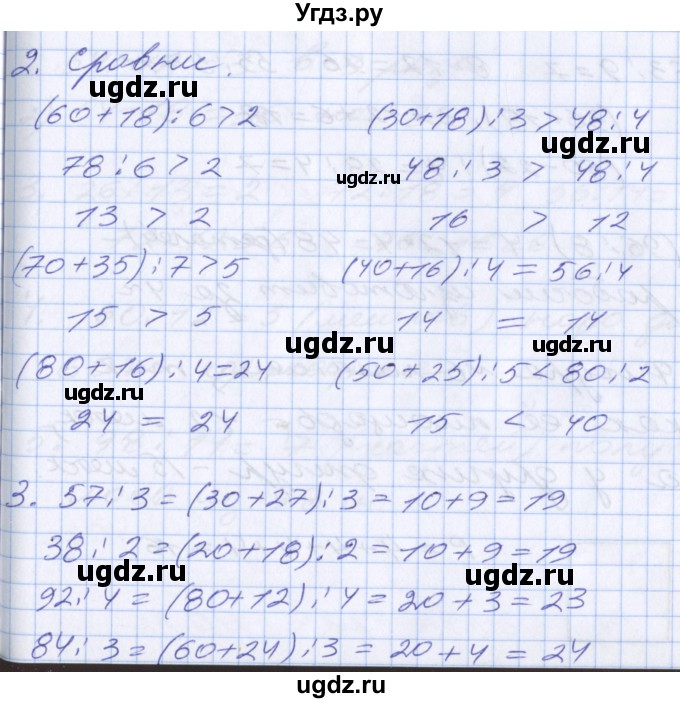 Угдз.ру
2. Сравни.
(60+18):6>2 (30+18):3>48:4
78:6>2 48:3 > 48:4
13 > 2 16 > 12
(70+35):7>5 (40+16):4=56:4
15 > 5 14 = 14
(80+16):4=24 (50+25):5<80:2
24 = 24 15 < 40
3. 57:3=(30+27):3=10+9=19
38:2=(20+18):2=10+9=19
92:4=(80+12):4=20+3=23
84:3=(60+24):3=20+4=24
ugdz.ru
ugdz.ru
ugdz.ru
ugdz.ru
ugdz.ru
ugdz.ru
ugdz.ru
ugdz.ru
ugdz.ru
ugdz.ru
ugdz.ru